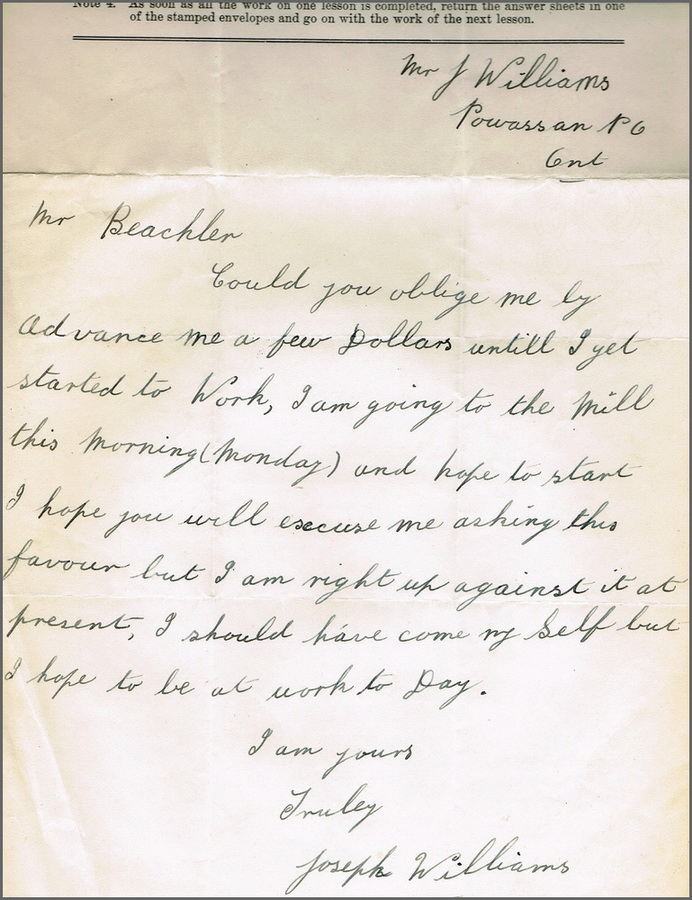 Note 4. As soon as all the work on one lesson is completed, return the answer sheets in one
of the stamped envelopes and go on with the work of the next lesson.
Mr J Williams
Powassan P O
Ont
Mr Beachler
Could you oblige me by
Advance me a few Dollars untill I get
started to Work, I am going to the Mill
this Morning (Monday) and hope to start
I hope you will excuse me asking this
favour but I am right up against it at
present, I should have come my Self but
I hope to be at work to Day.
I am yours
Truley
Joseph Williams